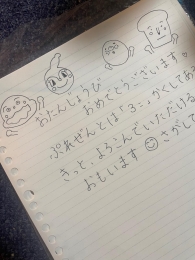 おたんじょうび
おめでとうございます
ぷれぜんとは「3-」かくしてあ
きっと、よろこんでいただける
おもいます さがして